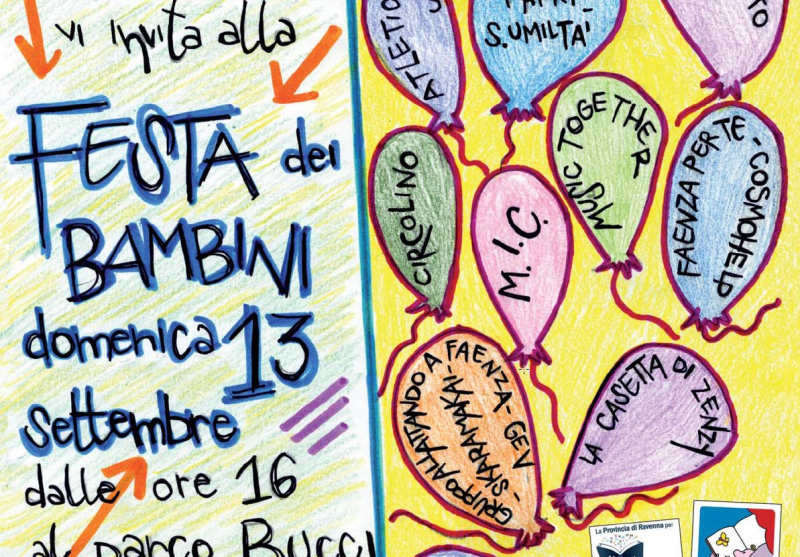 vi invita alla
FESTA dei
BAMBINI
domenica 13
settembre
dalle ore 16
al parco Bucci
S.UMILTAI
MUSIC TOGETHER
FAENZA PER TE-
COSMOHELP
CIRCOLINO
M.I.C.
GRUPPO ALLATTANDO A FAENZA-GEV
-SKARAMAKAI-
LA CASETTA DI ZENZY
La Provincia di Ravenna per